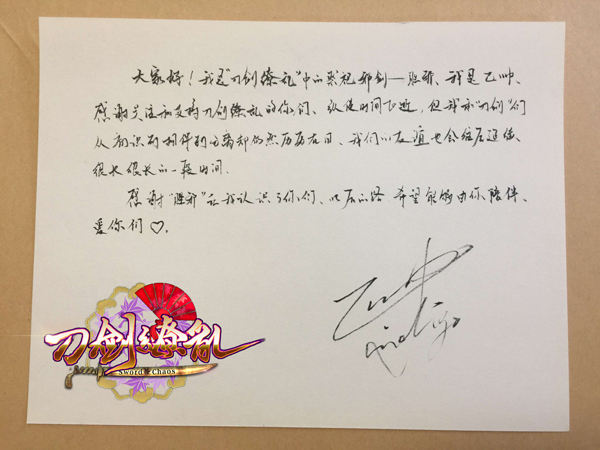 大家好！我是"刀剑缭乱"中的祭祀邪剑—胜邪、我是乙帅、
感谢关注和支持刀剑缭乱的你们、纵使时间飞逝，但我和"刀剑"们
从初识到相伴到分离却仍然历历在目、我们的友谊也会往后延续
很长很长的一段时间.
感谢"胜邪"让我认识了你们、以后的路希望能够由你陪伴、
爱你们♡.
刀剑缭乱
Sword Chaos